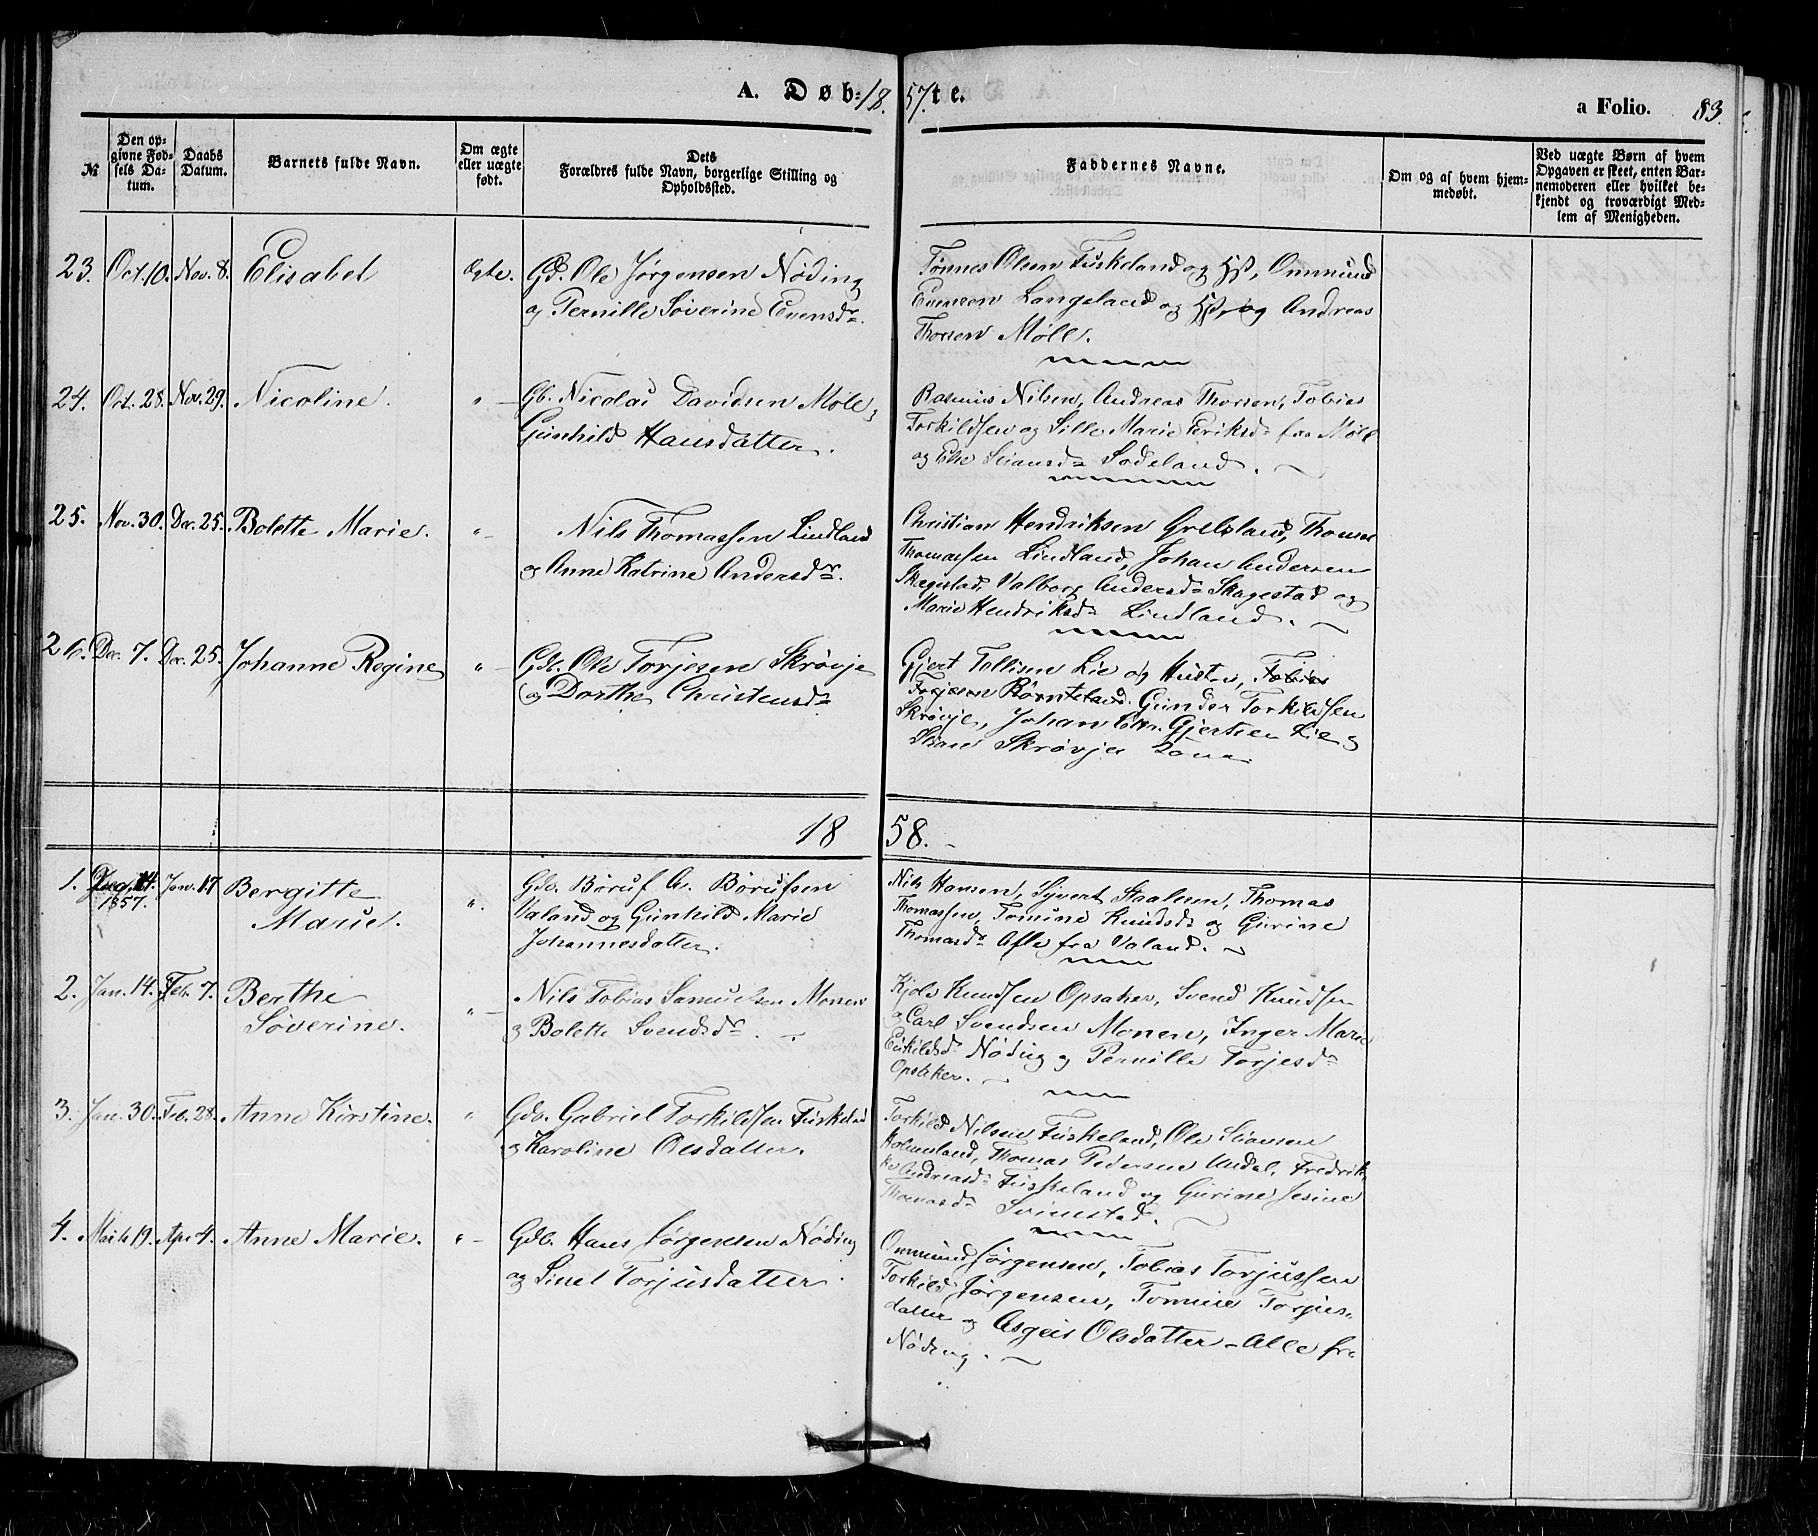 A. Døb- 18 57. te.
a Folio. 83.
№
Den opgivne Fødsels Datum.
Daabs Datum.
Barnets fulde Navn.
Om ægte eller uægte født.
Dets Forældres fulde Navn, borgerlige Stilling og Opholdssted.
Faddernes Navne.
Om og af hvem hjemmedøbt.
Ved uægte Børn af hvem Opgaven er skeet, enten Barnemoderen eller hvilket bekjendt og troværdigt Medlem af Menigheden.
23. Oct. 10. Nov. 8. Elisabet Ægte. Gb. Ole Jørgensen Nøding
og Pernille Søverine Evensdr.
Tønnes Olsen Fuskeland og Hst, Ommund
Evensen Langeland og Hst, og Andreas
Thorsen Møll.
24. Oct. 28. Nov. 29. Nicoline. " Gb. Nicolai Davidsen Møle
Gunhild Hansdatter.
Rasmus Nilsen, Andreas Thorsen, Tobias
Torkildsen og Sille Marie Eriksdr fra Møll
og Else Stiansdr Sodeland.
25. Nov. 30. Dec. 25. Bolette Marie. " Nils Thomassen Lindland
og Anne Katrine Andersdr.
Christian Hendriksen Grelsland, Thomas
Thomassen Lindland, Johan Andersen
Skagestad, Valborg Andersdr Skagestad og
Marie Hendriksdr Lindland.
26. Dec. 7. Dec. 25. Johanne Regine " Gdb. Ole Torjesen Skrøvje
og Dorthe Christensdr
Gjert Tollisen Lie og Hustr, Tobias
Torjesen Gunder Torkildsen
Skrøvje, Johan Chr. Gjertsen Lie og
Stian Skrøvje
18 58.
1. 1857. Jan. 17 Bergitte
Marie. " Gdb. Børuf A. Børufsen
Valand og Gunhild Marie
Johannesdatter.
Nils Hansen, Syvert Staalesen, Thomas
Thomassen, Tomine Knudsdr og Gurine
Thomasdr Alle fra Valand.
2. Jan. 14. Feb. 7. Berthe
Søverine. " Nils Tobias Samuelsen Monen
og Bolette Svendsdr.
Kjøls Knudsen Opsaker, Svend Knudsen
og Carl Svendsen Monen, Inger Marie
Eskildsdr Nøding og Pernille Torjesdr
Opsaker.
3. Jan. 30. Feb. 28. Anne Kirstine. " Gdb. Gabriel Torkildsen Fuskeland
og Karoline Olsdatter.
Torkild Nilsen Fuskeland, Ole Stiansen
Holmesland, Thomas Pedersen Undal, Fredrik-
ke Andreasdr Fuskeland og Gurine Jesine
Thomasdr Svinestad.
4. Marts 19. Apr. 4. Anne Marie. " Gdb. Hans Jørgensen Nøding
og Sinel Torjusdatter.
Ommund Jørgensen, Tobias Torjussen
Torkild Jørgensen, Tomine Torjus-
datter og Asgeis Olsdatter - Alle fra
Nøding.